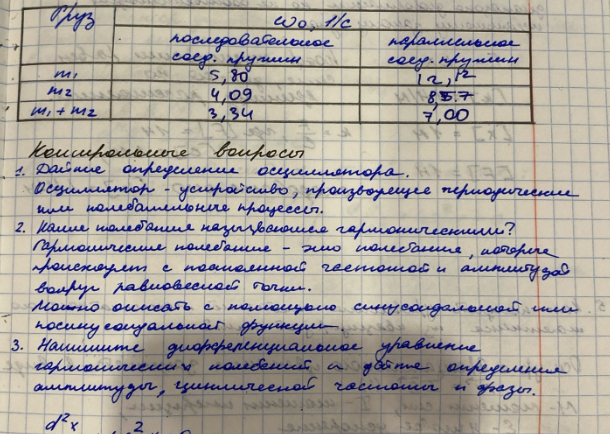 Груз
ω0, 1/с
последовательное соед. пружин
параллельное соед. пружин
m1 5,80 12,12
m2 4,09 8,57
m1 + m2 3,34 7,00
Контрольные вопросы
1. Дайте определение осциллятора.
Осциллятор - устройство, производящее периодические
или колебательные процессы.
2. Какие колебания называются гармоническими?
Гармонические колебание - это колебания, которые
происходят с постоянной частотой и амплитудой
вокруг равновесной точки.
Можно описать с помощью синусоидальной или
косинусоидальной функции.
3. Напишите дифференциальное уравнение
гармонических колебаний и дайте определение
амплитуды, циклической частоты и фазы.
d²x